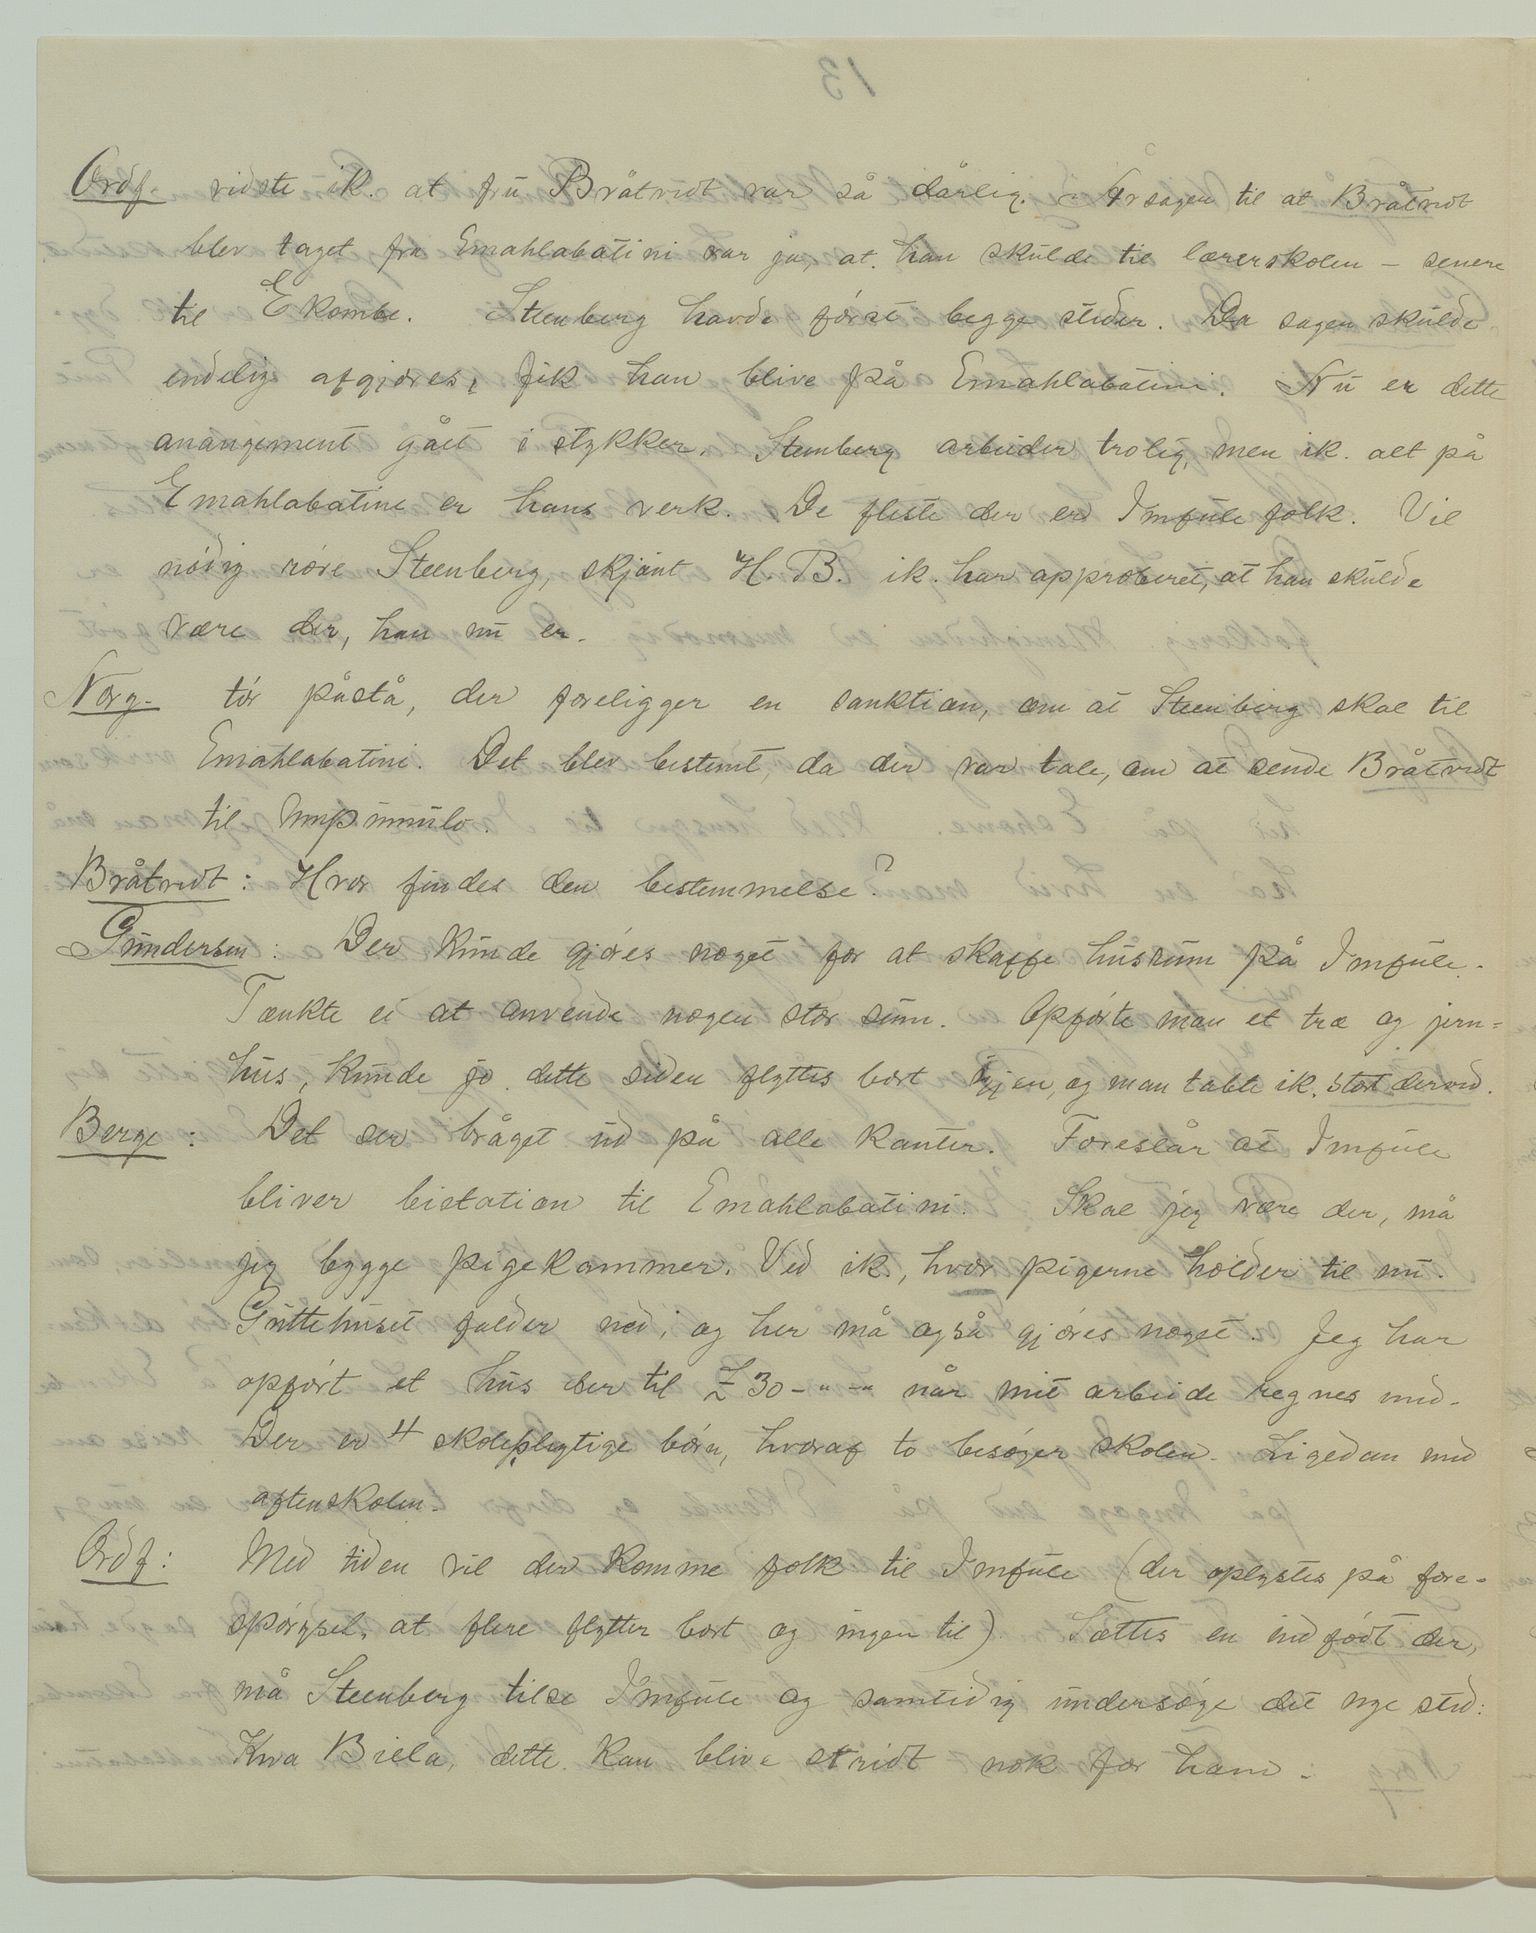 Ordf. vidste ik. at fru Bråtvedt var så dårlig. Årsagen til at Bråtvedt
blev taget fra Emahlabatini var jo, at han skulde til lærerskolen – senere
til Ekombe. Steenberg havde først begge steder. Da sagen skulde
endelig afgjøres, fik han blive på Emahlabatini. Nu er dette
arrangement gået i stykker. Steenberg arbeider trolig, men ik. alt på
Emahlabatini er hans verk. De fleste der er Imfule folk. Vil
nødig røre Steenberg, skjønt H.B. ik. har approberet, at han skulde
være der, han nu er.
Norg. tør påstå, der foreligger en sanktion, om at Steenberg skal til
Emahlabatini. Det blev bestemt, da der var tale, om at sende Bråtvedt
til Umpumulo.
Bråtvedt: Hvor findes den bestemmelse?
Gundersen: Der kunde gjøres noget for at skaffe husrum på Imfule.
Tænkte ei at anvende nogen stor sum. Opførte man et træ og jern=
hus, kunde jo dette siden flyttes bort igjen, og man tabte ik. stort derved.
Berge: Det ser bråget ud på alle kanter. Foreslår at Imfule
bliver bistation til Emahlabatini. Skal jeg være der, må
jeg bygge pigekammer. Ved ik., hvor pigerne holder til nu.
Guttehuset falder ned, og her må også gjøres noget. Jeg har
opført et hus der til £ 30-"-" når mit arbeide regnes med.
Der er 4 skolepligtige børn, hvoraf to besøger skolen. Ligedan med
aftenskolen.
Ordf: Med tiden vil der komme folk til Imfule (der oplystes på fore-
spørgsel, at flere flytter bort og ingen til). Sættes en indfødt der,
må Steenberg tilse Imfule og samtidig undersøge det nye sted:
Kwa Biela, dette kan blive stridt nok for ham.